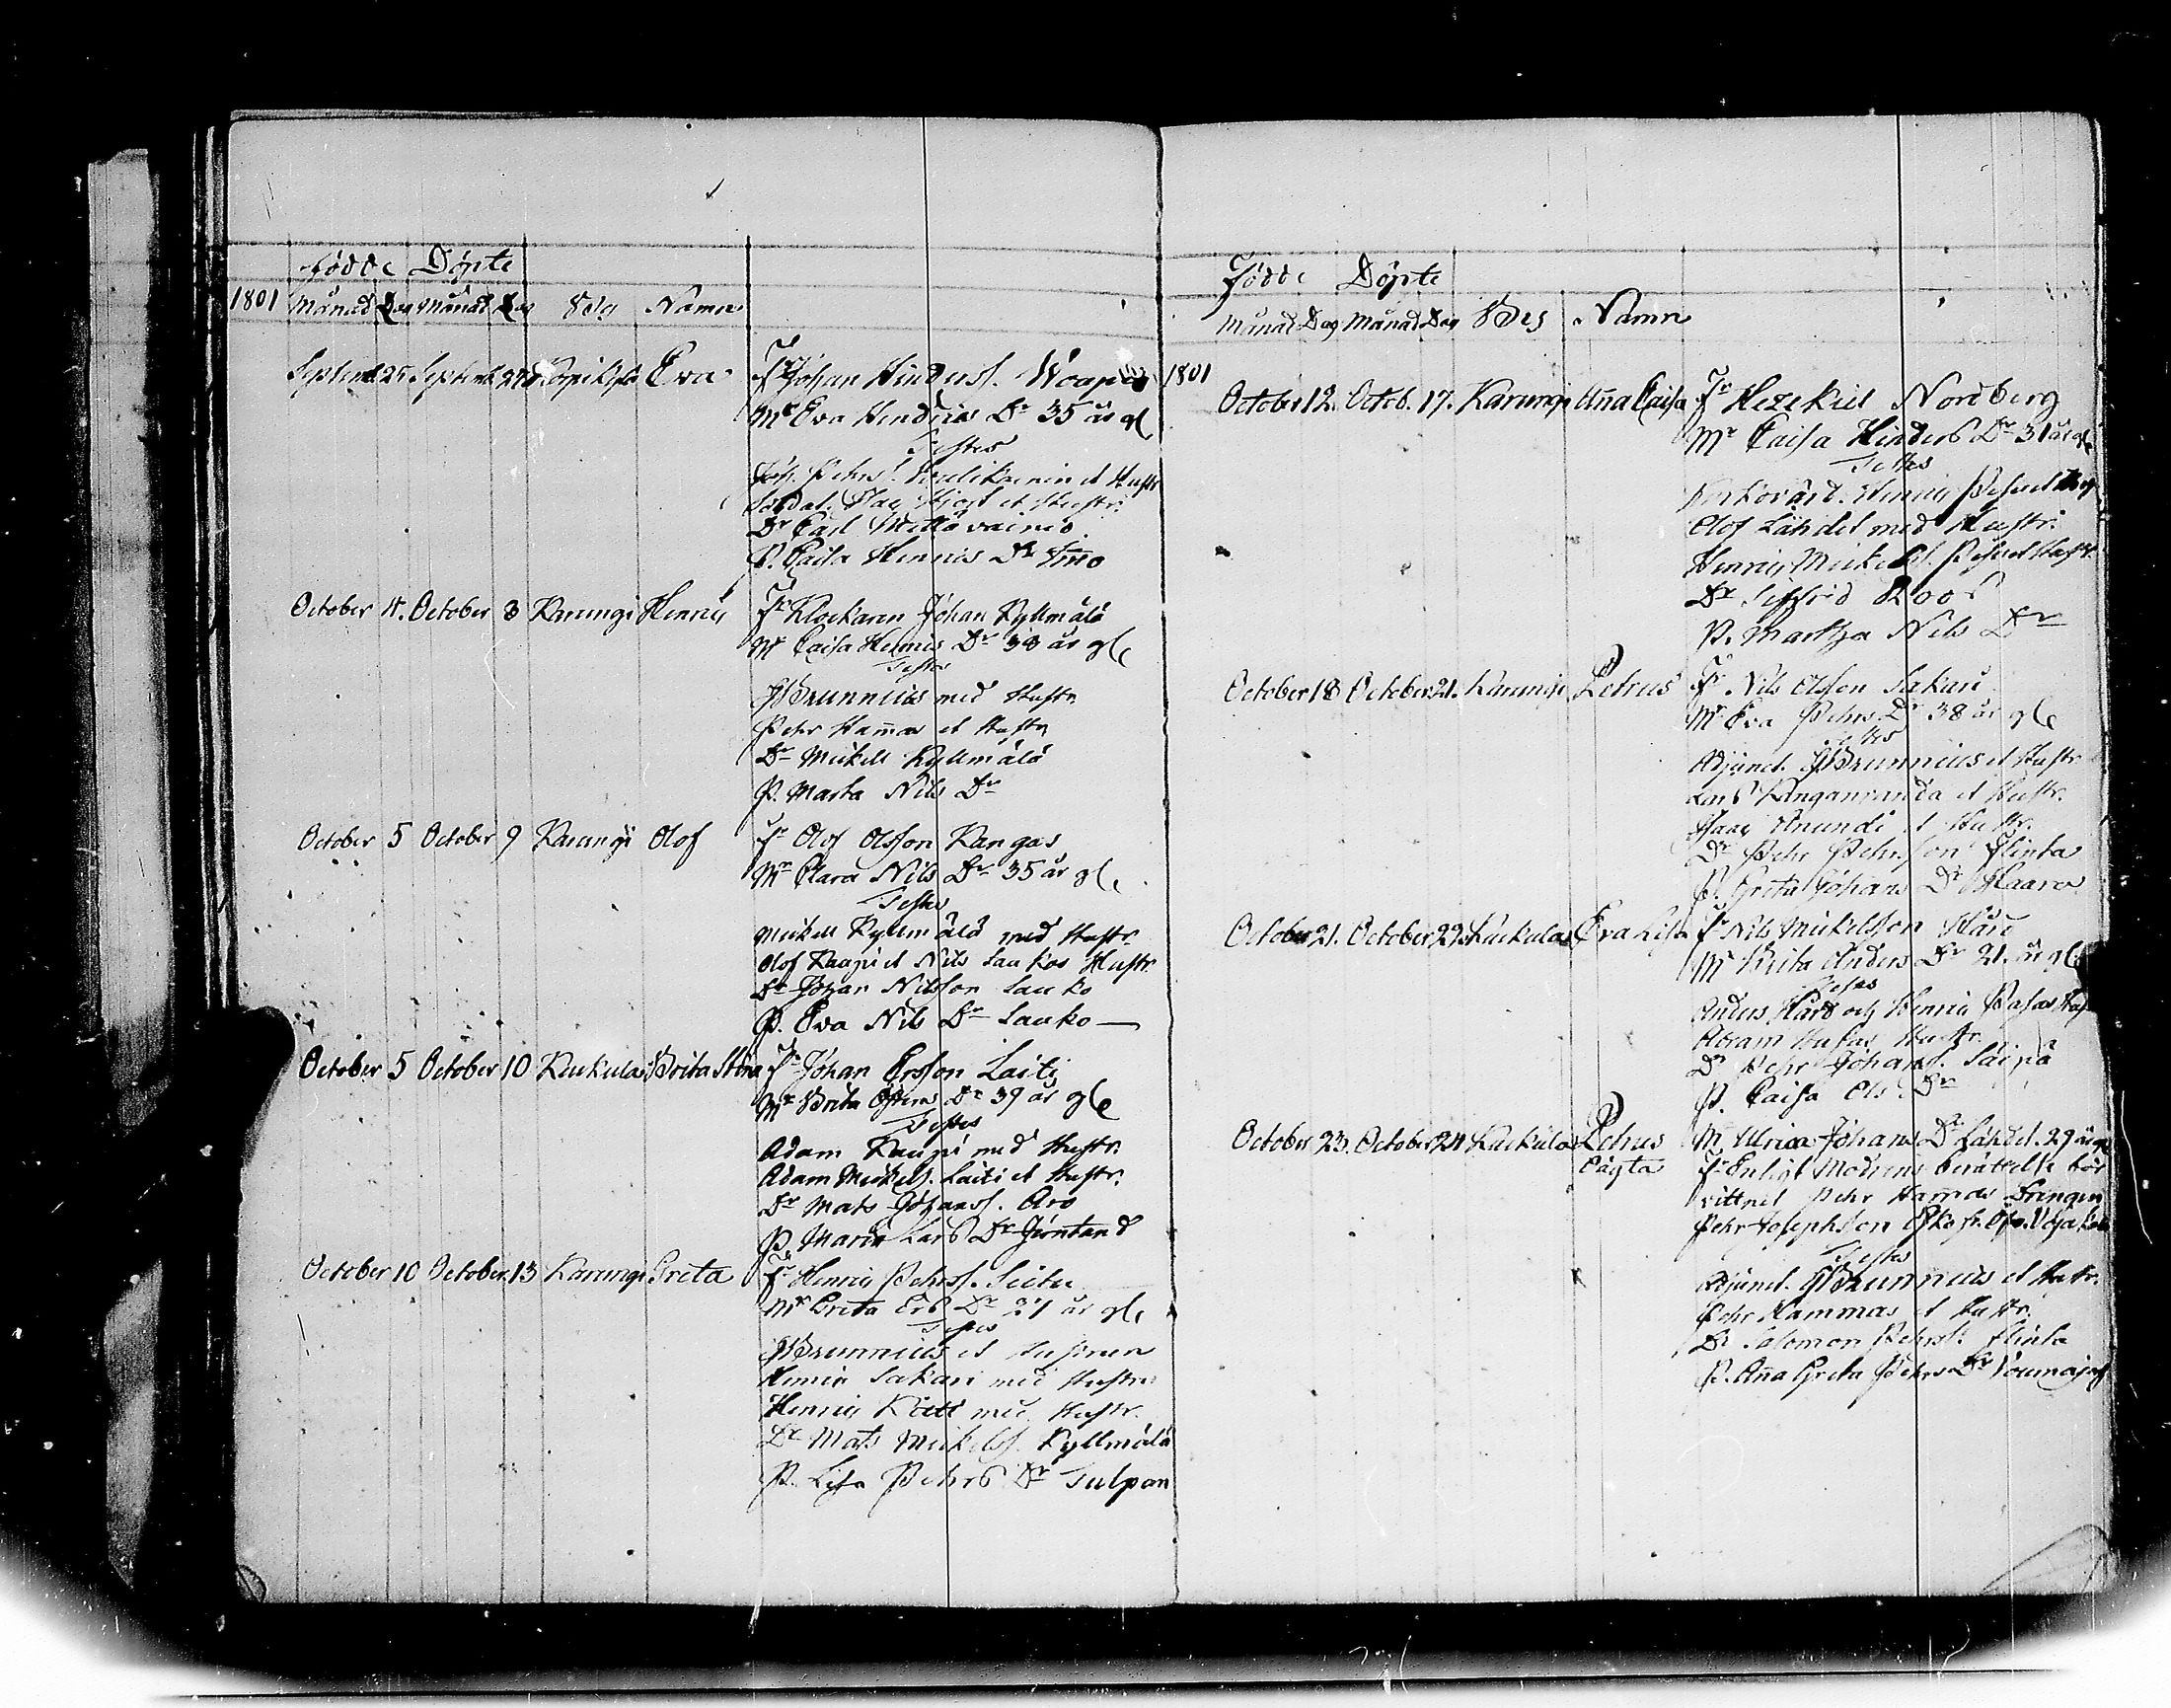 Födde Döpte
1801 Månad Dag Månad Dag Beg Namn
Septemb 25 Septemb 27 Eva Fr Johan Hinderss.
Mr Eva Hendrics Dr 35 år gl
Testes
Joh. Pehrs. et Hustr
Soldat. Isac et Hustr.
Dr Carl
P. Caisa Henrics Dr
October 4. October 8 Karungi Henric Fr Klockaren Johan Kyllmälä
Mr Caisa Henrics Dr 38 år gl
Testes
Brunnius med Hustr
Pehr Hamma et Hustr
Dr Mickell Kyllmälä
P. Marta Nils Dr
October 5 October 9 Karungi Olof Fr Olof Olsson Kangas
Mr Clara Nils Dr 35 år gl
Testes
Mickell Kyllmälä med Hustr.
Olof Kaupi et Nils Laukos Hustr.
Dr Johan Nilsson Lauko
P. Eva Nils Dr Lauko
October 5 October 10 Kuckula Brita Stina Fr Johan Ersson Laiti
Mr Brita Dr 39 år gl
Testes
Adam Kaupi med Hustr.
Adam Mickelss. Laiti et Hustr.
Dr Mats Johanss. Aro
P. Maria Lars Dr
October 10 October 13 Karungi Greta Fr Henric Pehrss.
Mr Greta Ers Dr 27 år gl
Testes
Brunnius et Hustrun
Henric Sakari med Hustru
Henric med Hustr.
Dr Mats Mickelss. Kyllmälä
P. Lisa Pehrs Dr Tulpan
Födde Döpte
Månad Dag Månad Dag Beg Namn
1801
October 12. Octob. 17. Karungi Anna Caisa Fr Hezekiel Nordberg
Mr Caisa Hinders Dr 31 år gl
Testes
Kyrkovärd. Henric
Olof Lähdet med Hustr.
Henric Mickelss. Hustr.
Dr Sigfrid Roos
P. Martha Nils Dr
October 18 October 21. Karungi Petrus Fr Nils Olsson Sakari
Mr Eva Pehrs Dr 38 år gl
Testes
Adjunct. Brunnius et Hustr
Lars Kanganranda et Hustr.
Isaac Anundi et Hustr.
Dr Pehr Pehrsson Flinta
P. Greta Johans Dr Haara
October 21. October 22 Kuckula Eva Lisa Fr Nils Mickelsson Hård
Mr Brita Anders Dr 21. år gl
Testes
Anders Hård och Henric
Abram Hustr.
Dr Pehr Johanss.
P. Caisa Ols Dr
October 23. October 24 Kuckula Petrus Mr Ulrica Johans Dr Lähdet. 29 år gl
oägta Fr Enligt Modrens berättelse
vittnet Pehr Hammas Drengen
Pehr Josephson
Testes
Adjunct. Brunnius et Hustr.
Pehr Hammas et Hustr.
Dr Salomon Pehrss. Flinta
P. Anna Greta Pehrs Dr